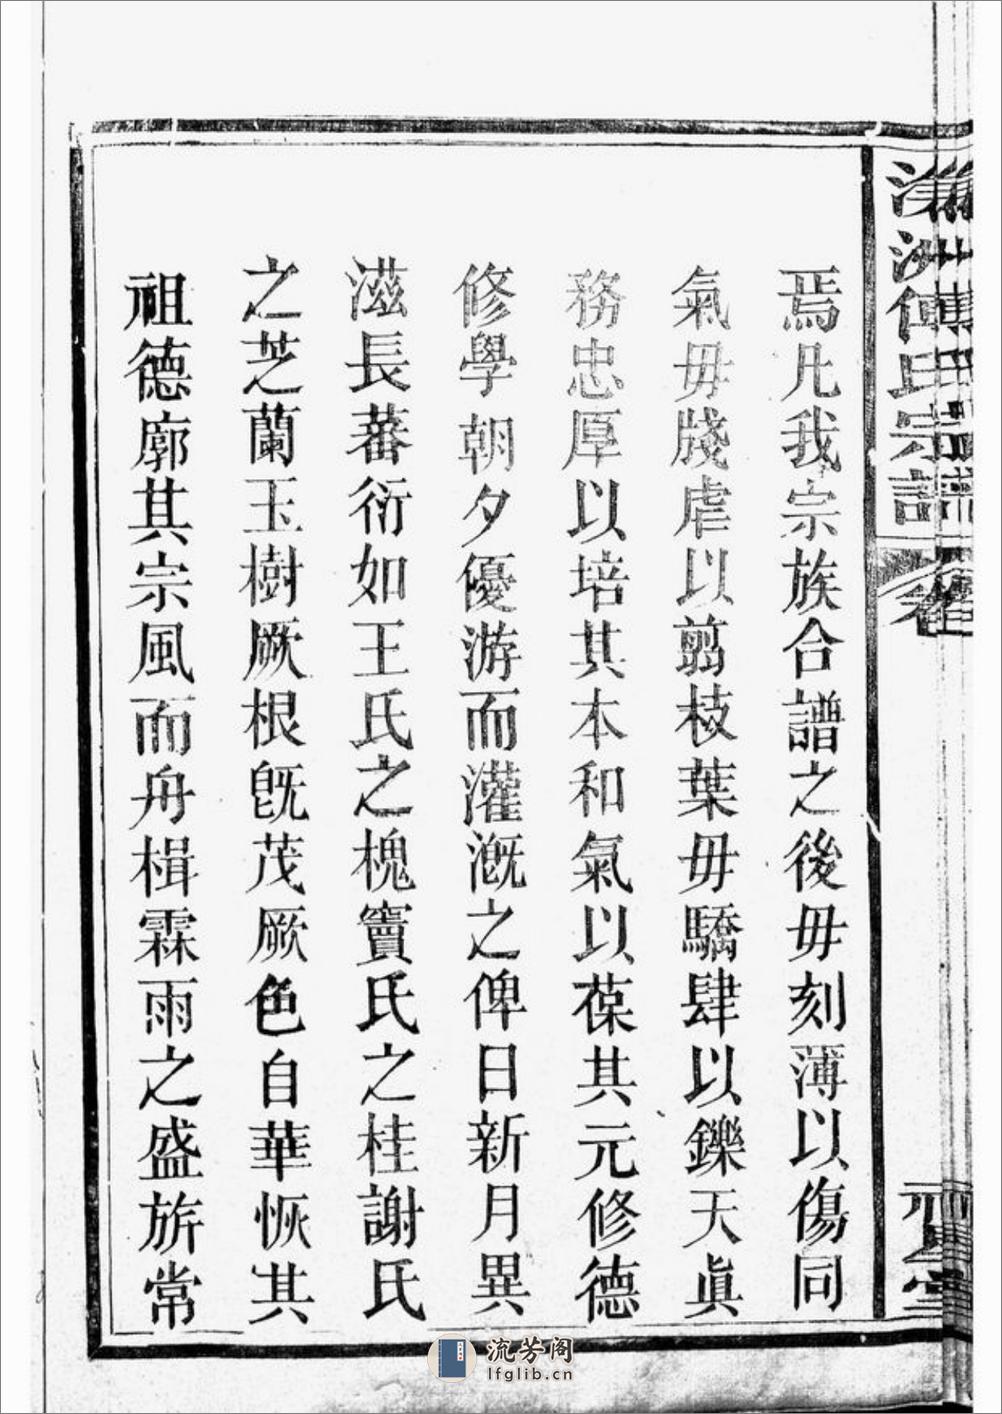 洲傅氏宗譜 卷
焉凡我宗族合譜之後毋刻薄以傷同
氣毋牋虐以翦枝葉毋驕肆以鑠天眞
務忠厚以培其本和氣以葆其元修德
修學朝夕優游而灌漑之俾日新月異
滋長蕃衍如王氏之槐竇氏之桂謝氏
之芝蘭玉樹厥根旣茂厥色自華恢其
祖德廓其宗風而舟楫霖雨之盛旂常
流芳阁
lfglib.cn